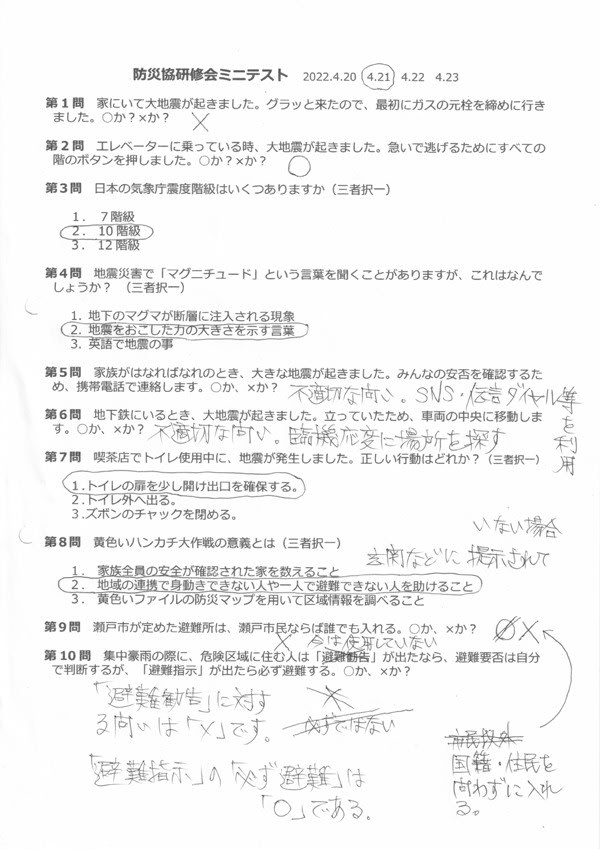 防災協研修会ミニテスト 2022.4.20 4.21 4.22 4.23
第1問 家にいて大地震が起きました。グラッと来たので、最初にガスの元栓を締めに行き
ました。○か？×か？ ×
第2問 エレベーターに乗っている時、大地震が起きました。急いで逃げるためにすべての
階のボタンを押しました。○か？×か？ ○
第3問 日本の気象庁震度階級はいくつありますか（三者択一）
1. 7階級
2. 10階級
3. 12階級
第4問 地震災害で「マグニチュード」という言葉を聞くことがありますが、これはなんで
しょうか？ （三者択一）
1. 地下のマグマが断層に注入される現象
2. 地震をおこした力の大きさを示す言葉
3. 英語で地震の事
第5問 家族がはなればなれのとき、大きな地震が起きました。みんなの安否を確認するた
め、携帯電話で連絡します。○か、×か？ 不適切な問い。SNS・伝言ダイヤル等を利用
第6問 地下鉄にいるとき、大地震が起きました。立っていたため、車両の中央に移動しま
す。○か、×か？ 不適切な問い。臨機応変に場所を探す
第7問 喫茶店でトイレ使用中に、地震が発生しました。正しい行動はどれか？（三者択一）
1.トイレの扉を少し開け出口を確保する。
2.トイレ外へ出る。
3.ズボンのチャックを閉める。
第8問 黄色いハンカチ大作戦の意義とは（三者択一）
玄関などに提示されて
いない場合
1. 家族全員の安全が確認された家を数えること
2. 地域の連携で身動きできない人や一人で避難できない人を助けること
3. 黄色いファイルの防災マップを用いて区域情報を調べること
第9問 瀬戸市が定めた避難所は、瀬戸市民ならば誰でも入れる。○か、×か？ ○×
× 今は使用していない
第10問 集中豪雨の際に、危険区域に住む人は「避難勧告」が出たなら、避難要否は自分
で判断するが、「避難指示」が出たら必ず避難する。○か、×か？
「避難勧告」に対す
る問いは「×」です。
×
必ずではない
「避難指示」の「必ず避難」は
「○」である。
市民以外
国籍・住民を
問わずに入れ
る。